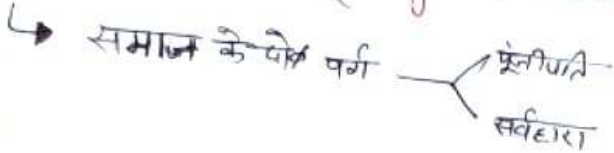 ↳ समाज के दो वर्ग
पूंजीपति
सर्वहारा